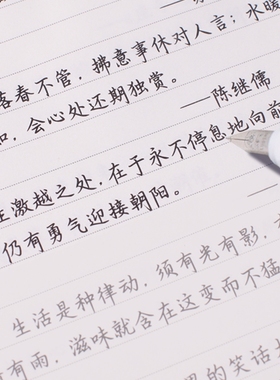 落春不管，拂意事休对人言；水暖
知，会心处还期独赏。
——陈继儒
在激越之处，在于永不停息地向前
仍有勇气迎接朝阳。
生活是种律动，须有光有影，
有雨，滋味就含在这变而不猛
的笑话